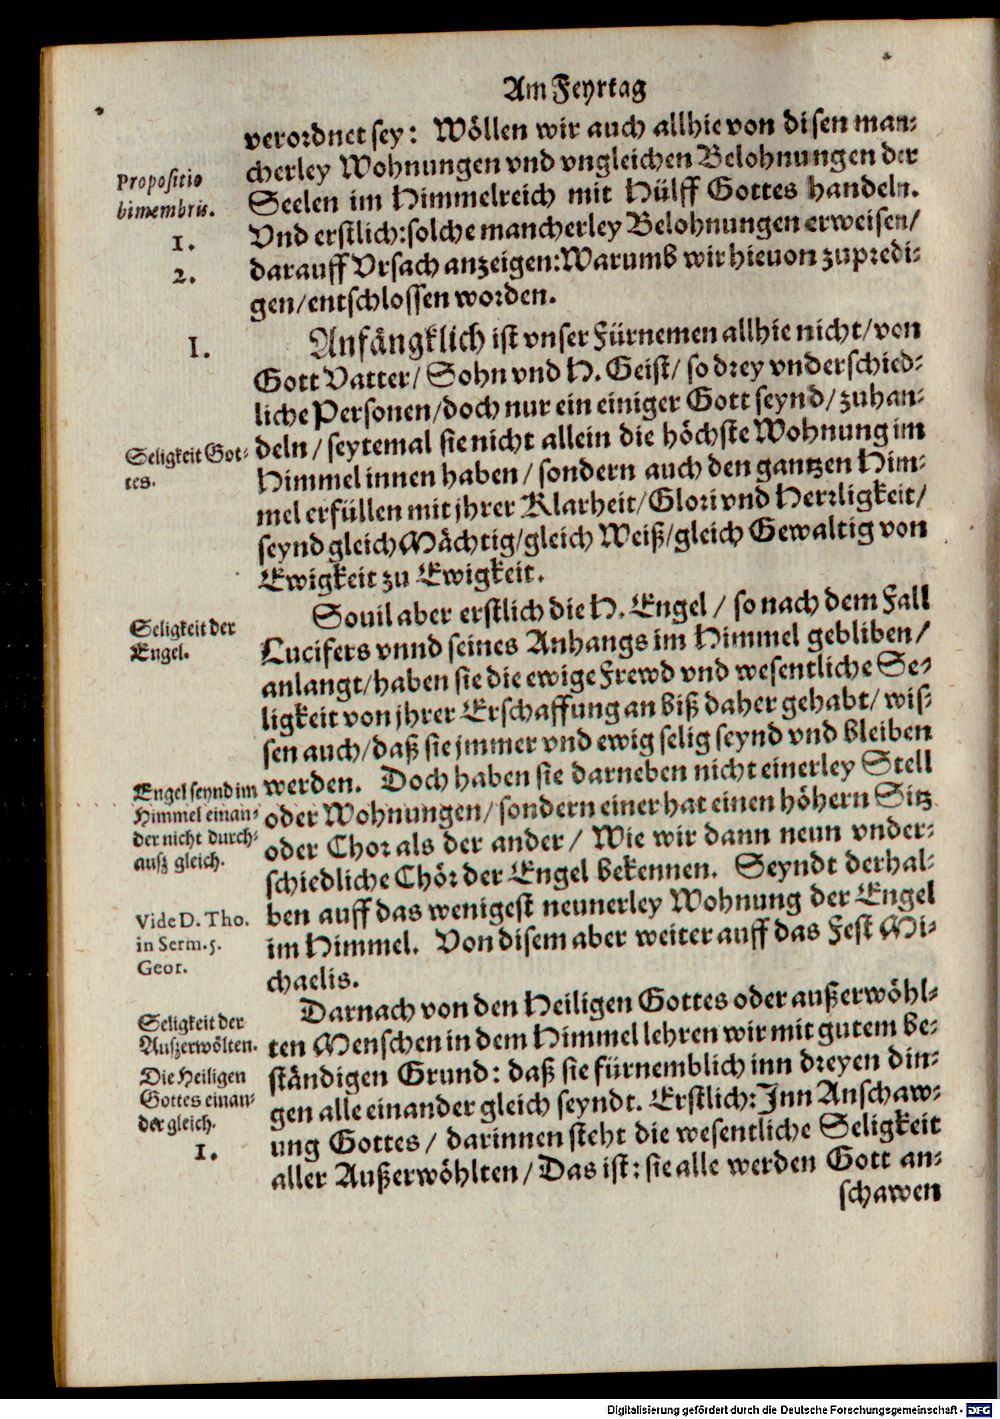 Am Feyrtag
verordnet sey: Wöllen wir auch allhie von disen man-
cherley Wohnungen vnd vngleichen Belohnungen der
Seelen im Himmelreich mit Hülff Gottes handeln.
Vnd erstlich: solche mancherley Belohnungen erweisen/
darauff Vrsach anzeigen: Warumb wir hieuon zupredi-
gen/ entschlossen worden.
Propositio
bimembris.
1.
2.
Anfängklich ist vnser Fürnemen allhie nicht/ von
Gott Vatter/ Sohn vnd H. Geist/ so drey vnderschied-
liche Personen/ doch nur ein einiger Gott seynd/ zuhan-
deln/ seytemal sie nicht allein die höchste Wohnung im
Himmel innen haben/ sondern auch den gantzen Him-
mel erfüllen mit jhrer Klarheit/ Glori vnd Herrligkeit/
seynd gleich Mächtig/ gleich Weiß/ gleich Gewaltig von
Ewigkeit zu Ewigkeit.
1.
Seligkeit Got-
tes.
Souil aber erstlich die H. Engel/ so nach dem Fall
Lucifers vnnd seines Anhangs im Himmel gebliben/
anlangt/ haben sie die ewige Frewd vnd wesentliche Se-
ligkeit von jhrer Erschaffung an biß daher gehabt/ wis-
sen auch/ daß sie jmmer vnd ewig selig seynd vnd bleiben
werden. Doch haben sie darneben nicht einerley Stell
oder Wohnungen/ sondern einer hat einen höhern Sitz
oder Chor als der ander/ Wie wir dann neun vnder-
schiedliche Chör der Engel bekennen. Seyndt derhal-
ben auff das wenigest neunerley Wohnung der Engel
im Himmel. Von disem aber weiter auff das Fest Mi-
chaelis.
Seligkeit der
Engel.
Engel seynd im
Himmel einan-
der nicht durch-
auß gleich.
Vide D. Tho.
in Serm. 5.
Geor.
Darnach von den Heiligen Gottes oder außerwöhl-
ten Menschen in dem Himmel lehren wir mit gutem be-
ständigen Grund: daß sie fürnemblich inn dreyen din-
gen alle einander gleich seyndt. Erstlich: Inn Anschaw-
ung Gottes/ darinnen steht die wesentliche Seligkeit
aller Außerwöhlten/ Das ist: sie alle werden Gott an-
schawen
Seligkeit der
Außerwölten.
Die Heiligen
Gottes einan-
der gleich.
1.
Digitalisierung gefördert durch die Deutsche Forschungsgemeinschaft - DFG